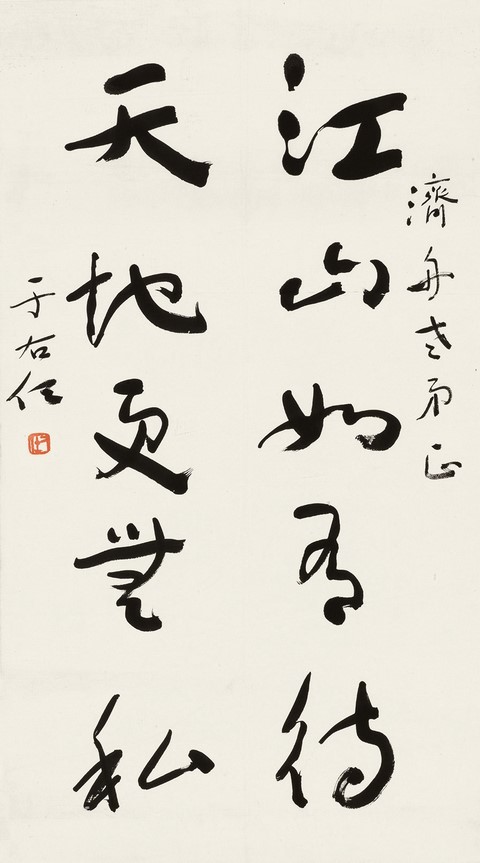 濟舟老弟正
江山如有待
天地更無私
于右任